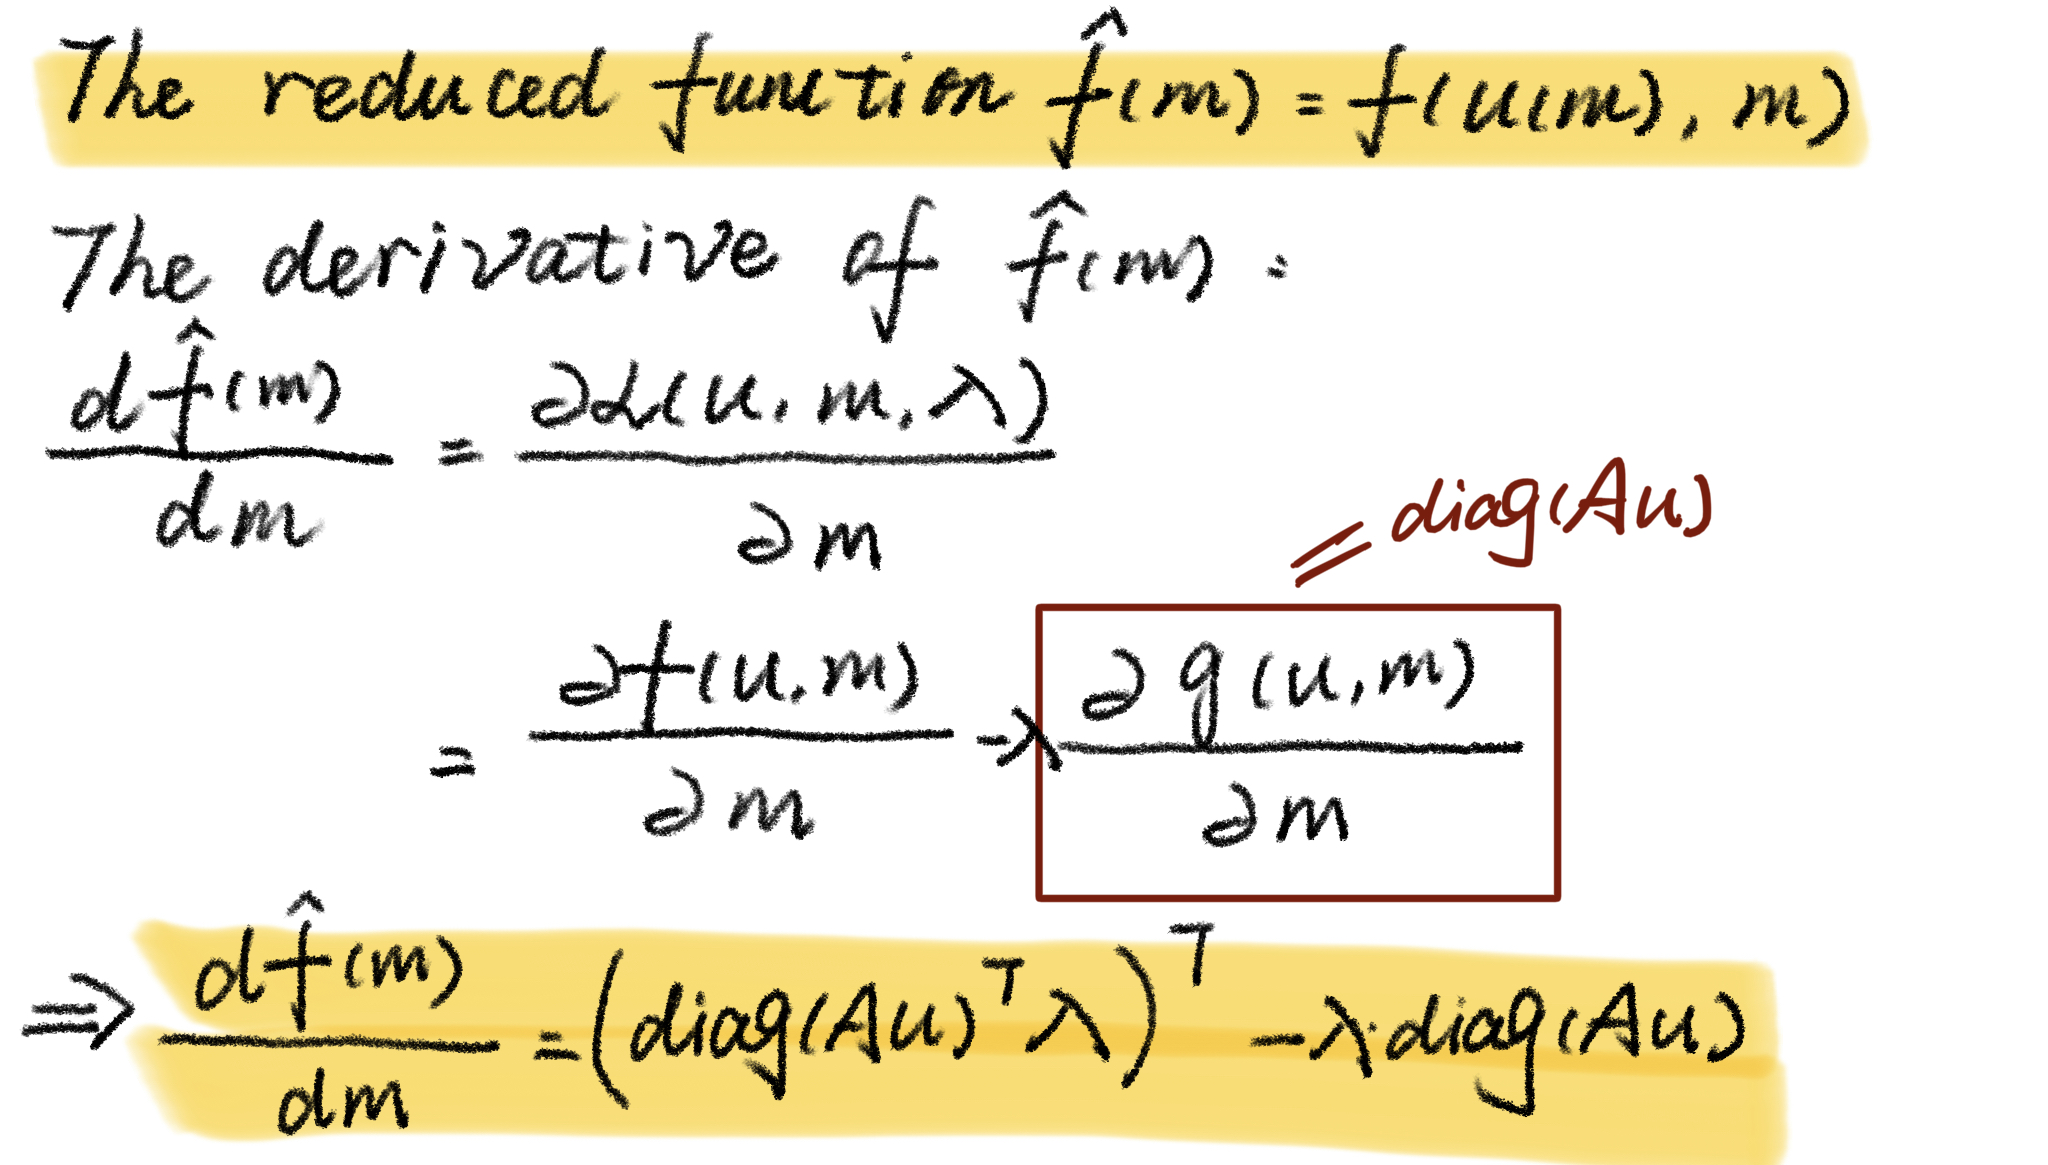 The reduced function f̂(m) = f(u(m), m)
The derivative of f̂(m) :
df̂(m)/dm = ∂L(u, m, λ)/∂m
= diag(Au)
= ∂f(u, m)/∂m - λ ∂g(u, m)/∂m
⇒ df̂(m)/dm = (diag(Au)ᵀ λ)ᵀ - λ · diag(Au)